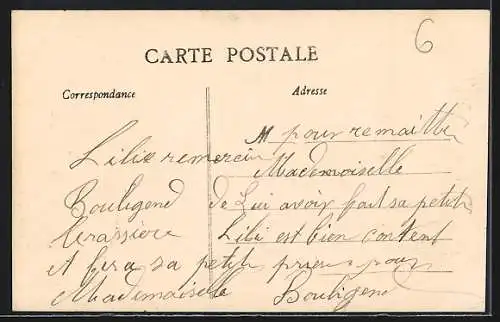 6
CARTE POSTALE
Correspondance
Adresse
M pour remaittre
Lilie remercie Mademoiselle
Bouligend de Lui avoir fait sa petite
Lili est bien content
et fera sa petite priere pour
Mademoiselle Bouligend